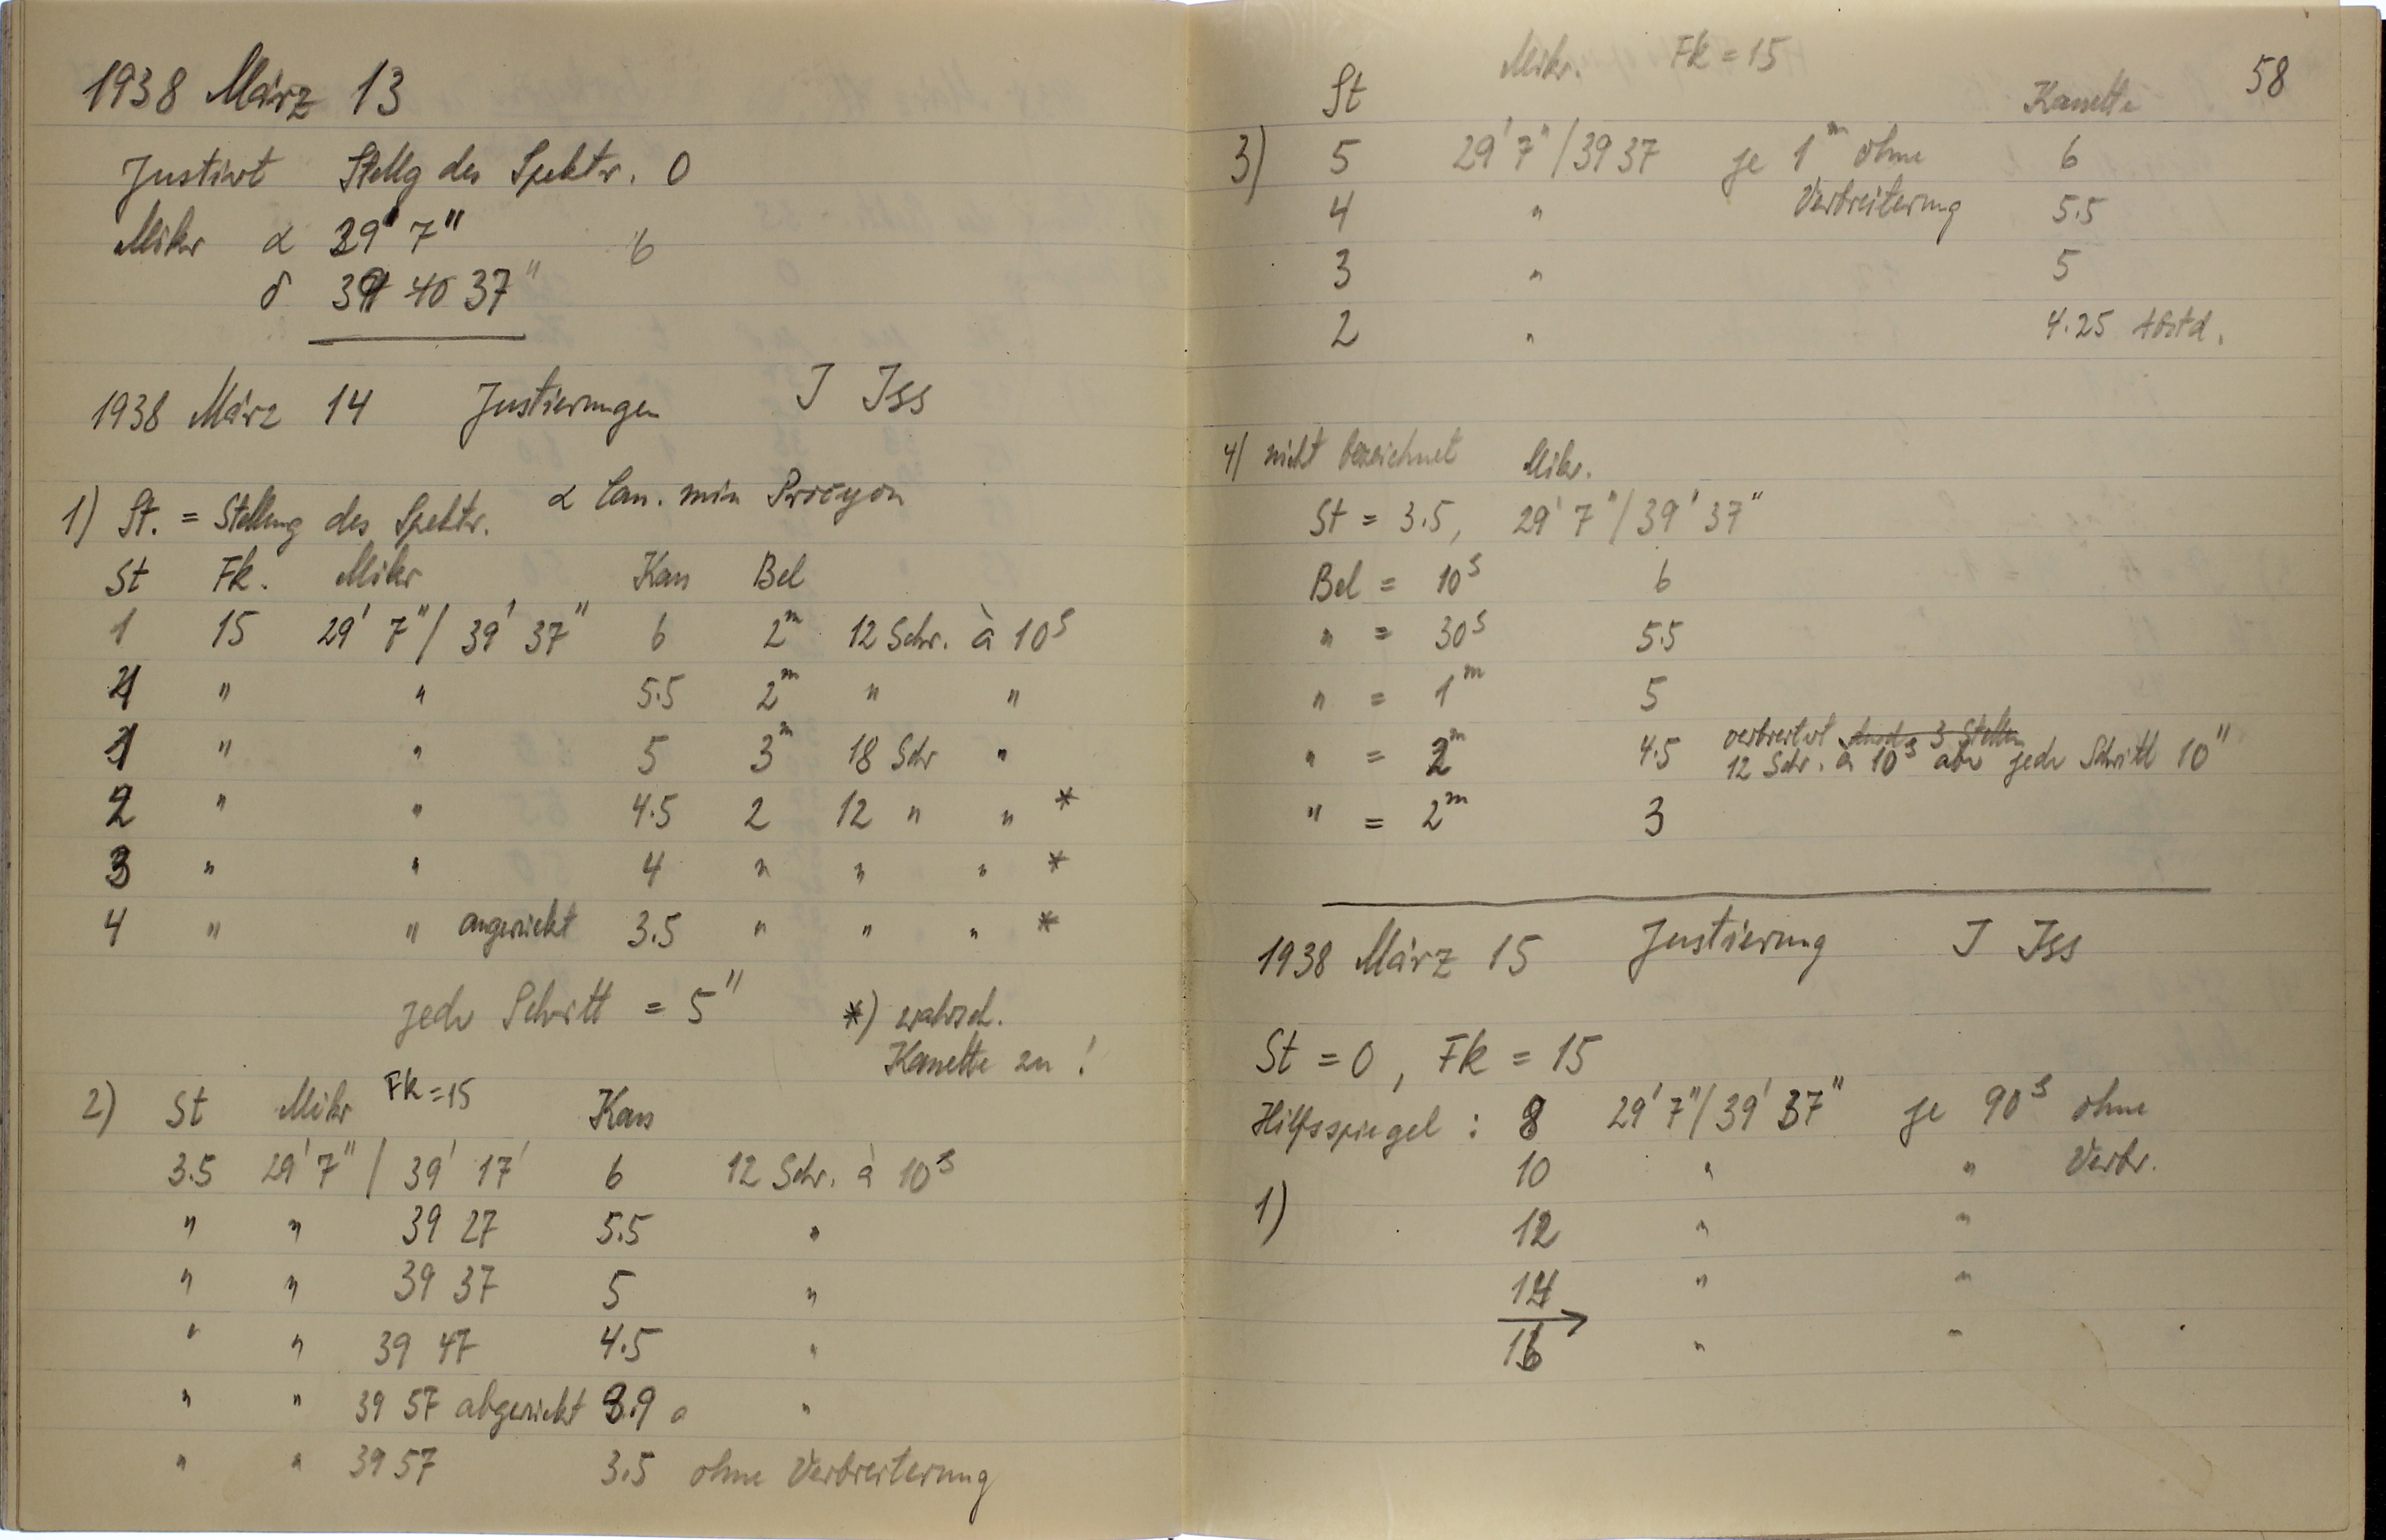 1938 März 13
Justirt Stellg des Spektr. 0
Mikr α 29' 7" 6
δ 39 40 37"
1938 März 14 Justierungen J Iss
1) St. = Stellung des Spektr. α Can. min Procyon
St Fk. Mikr Kas Bel
1 15 29' 7" / 39' 37" 6 2m 12 Schr. à 10s
1 " " 5.5 2m " "
1 " " 5 3m 18 Schr "
2 " " 4.5 2 12 " " *
3 " " 4 " " " *
4 " " angerückt 3.5 " " " *
jeder Schritt = 5" *) wahrsch.
Kasette zu !
2) St Mikr Fk = 15 Kas
3.5 29' 7" / 39' 17' 6 12 Schr. à 10s
" " 39 27 5.5 "
" " 39 37 5 "
" " 39 47 4.5 "
" " 39 57 abgerückt 3.9 "
" " 39 57 3.5 ohne Verbreiterung
58
St Mikr. Fk = 15 Kasette
3) 5 29' 7" / 39 37 je 1m ohne 6
4 " Verbreiterung 5.5
3 " 5
2 " 4.25
4) nicht bezeichnet Mikr.
St = 3.5, 29' 7" / 39' 37"
Bel = 10s 6
" = 30s 5.5
" = 1m 5
" = 2m 4.5 verbreitert durch 3 Stellen
12 Schr. à 10s aber jeder Schritt 10"
" = 2m 3
1938 März 15 Justierung J Iss
St = 0, Fk = 15
Hilfsspiegel : 8 29' 7" / 39' 37" je 90s ohne
10 " " Verbr.
1) 12 " "
14 " "
16 " "